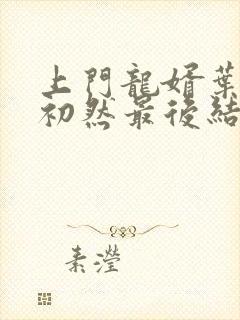 上門龍婿葉
初然最後結
素瀅